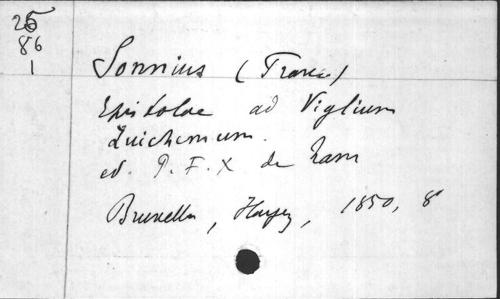 25
86
1
Sonnius (Franc.)
Epistolae ad Viglium
Zuichemum.
ed. P. F. X de Ram
Bruxelles, Hayez, 1850, 8°